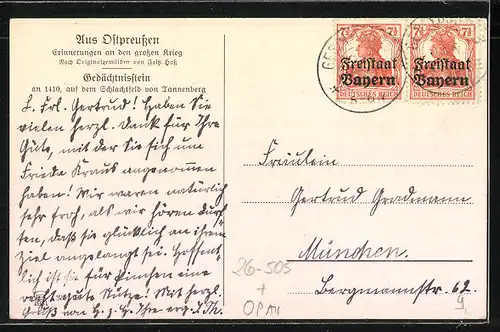 Aus Ostpreußen
Erinnerungen an den großen Krieg
Nach Originalgemälden von Fritz Haß
Gedächtnisstein
an 1410, auf dem Schlachtfeld von Tannenberg
L. Frl. Gertrud! Haben Sie
vielen herzl. Dank für Ihre
Güte, mit der Sie sich um
Frieda Kraus angenommen
haben! Wir waren natürlich
sehr froh, als wir hören durf-
ten, daß sie glücklich an ihrem
Ziel angelangt sei. Hoffent-
lich ist sie für
recht gute Stütze! Mit herzl.
Gruß von
7½ 7½
Freistaat
Bayern
DEUTSCHES REICH
7½ 7½
Freistaat
Bayern
DEUTSCHES REICH
Fräulein
Gertrud Grademann
München.
Bergmannstr. 62
26-505
+